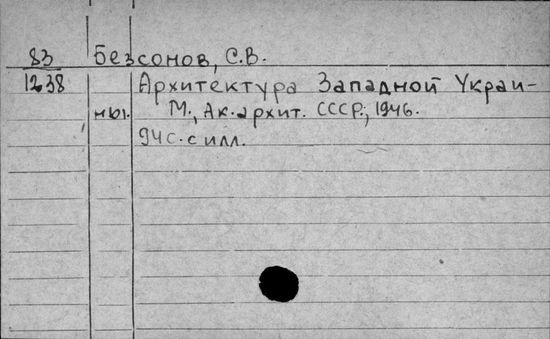 83 Безсонов, С.В.
1238 Архитектура Западной Украи-
ны. М., Ак. архит. СССР., 1946.
94с. с илл.